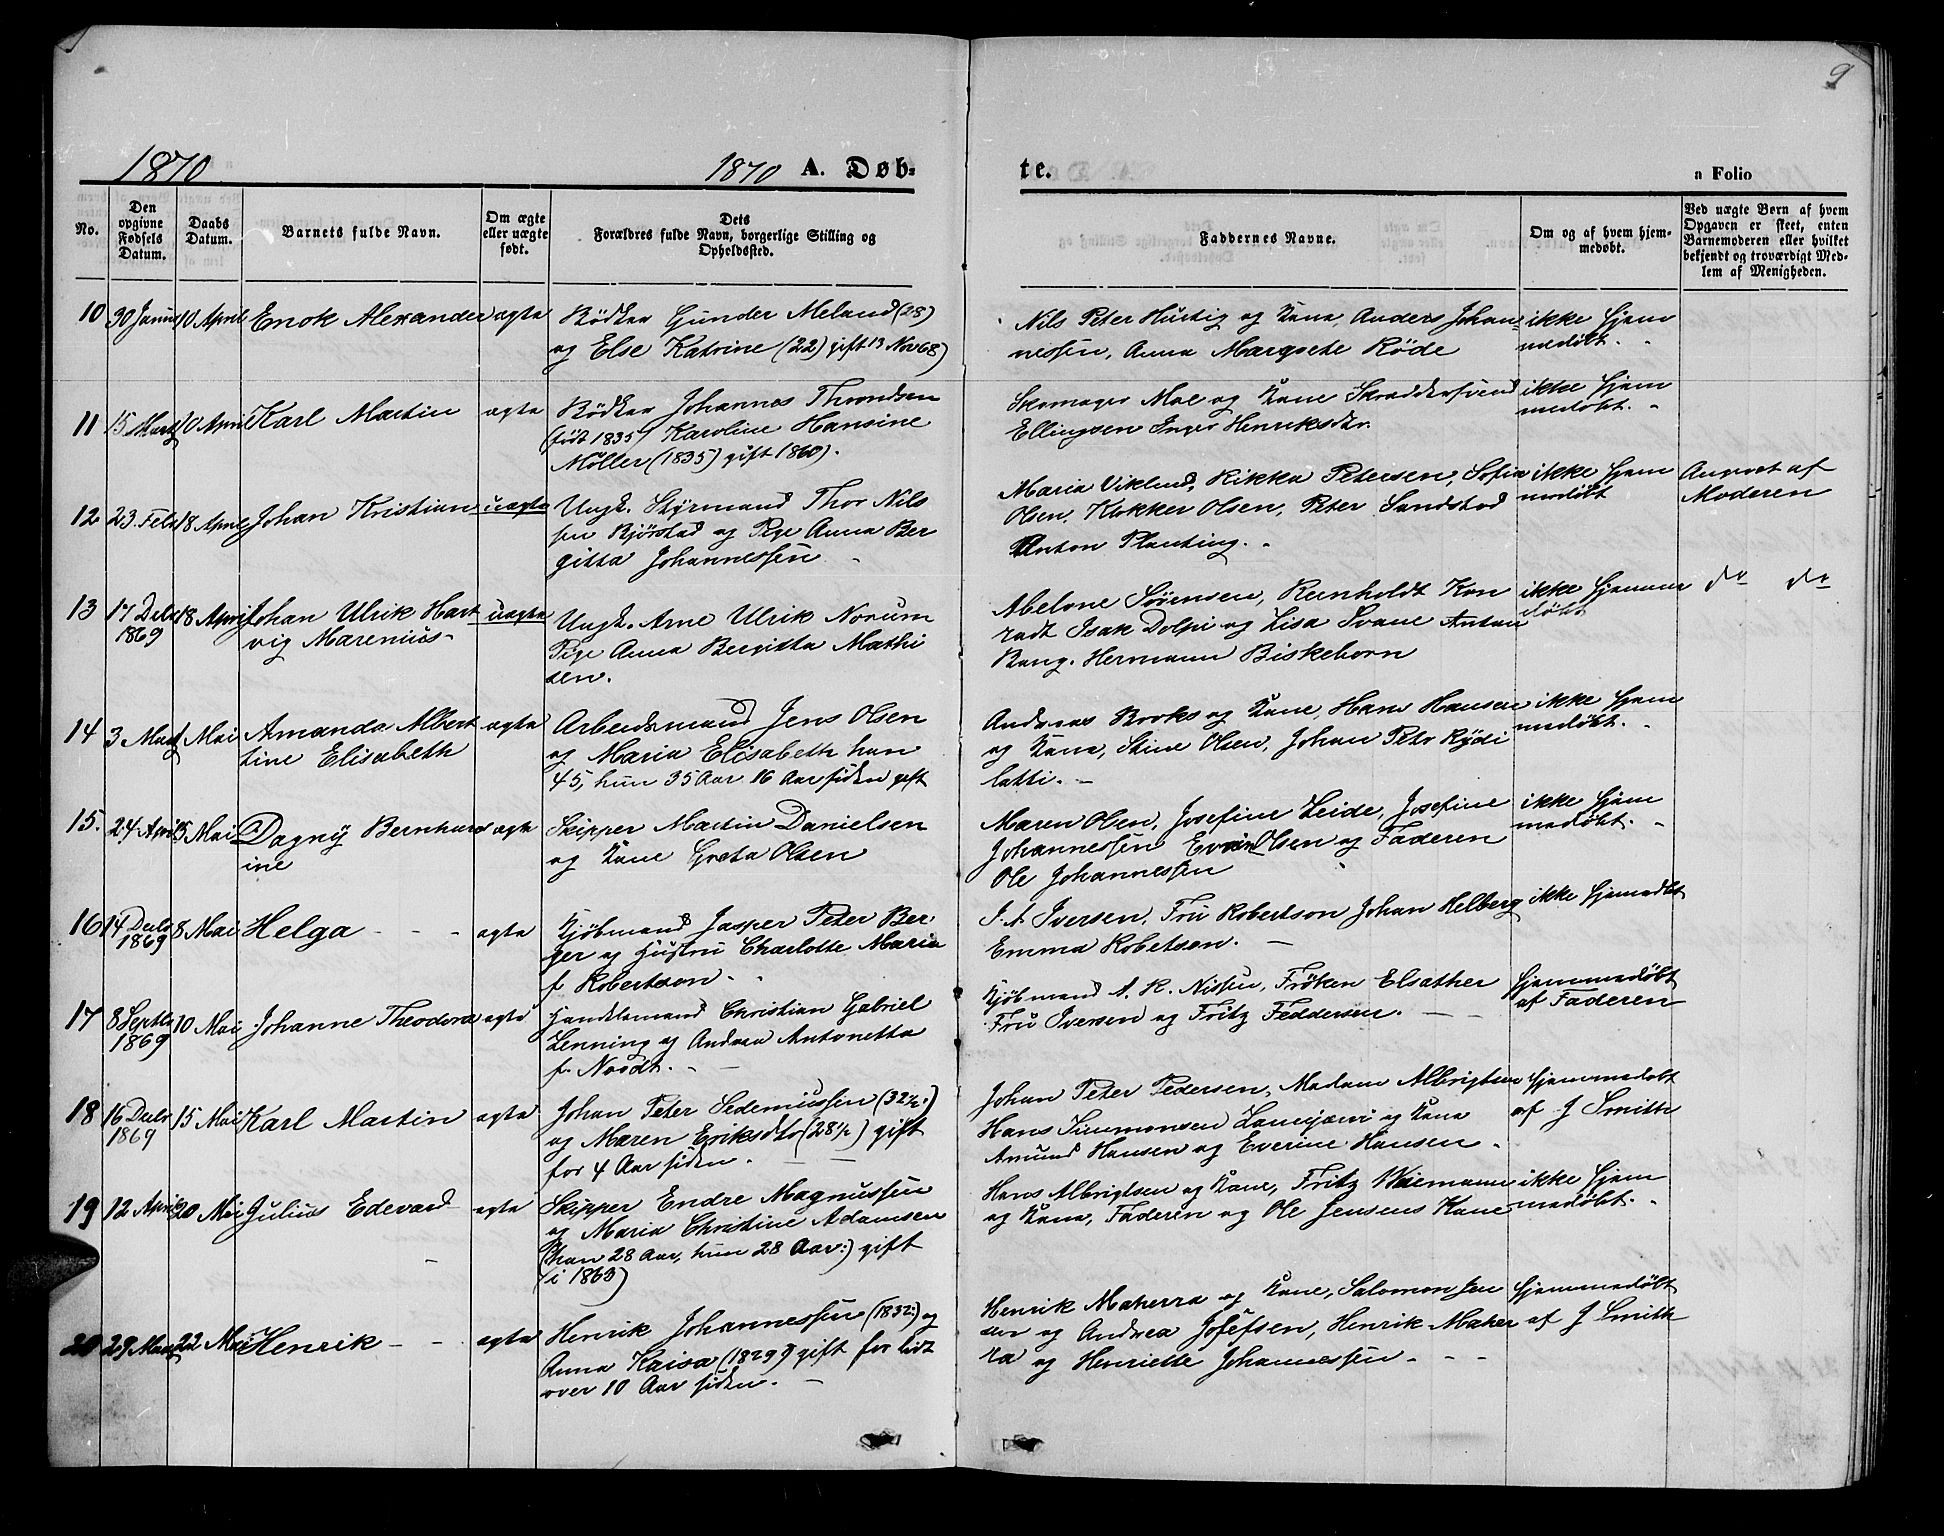 9
1870
1870 A. Døb-
te.
a Folio
No.
Den opgivne Fødsels Datum.
Daabs Datum.
Barnets fulde Navn.
Om ægte eller uægte født.
Dets Forældres fulde Navn, borgerlige Stilling og Opholdssted.
Faddernes Navne.
Om og af hvem hjemmedøbt.
Ved uægte Børn af hvem Opgaven er skeet, enten Barnemoderen eller hvilket bekjendt og troværdigt Medlem af Menigheden.
10 30 Januar 10 April Enok Alexander ægte
Bödker Gunder Meland (28)
og Else Katrine (22) gift 13 Nov 68)
Nils Peter Hustig og Kone, Anders Johan-
nessen, Anna Margrete Röde
ikke hjem
medøbt.
11 15 Marts 10 April Karl Martin ægte
Bödker Johannes Throndsen
(født 1835) Karoline Hansine
Möller (1835) gift 1860).
Skomager Moe og Kone Skræddersvend
Ellingsen Inger Henriksdtr.
ikke hjem
medøbt.
12 23 Feb 18 April Johan Kristian uægte
Ungk. Styrmand Thor Nils
sen Bjørstad og Pige Anna Ber
gitta Johannessen
Maria Viklund, Rikka Petersen, Sofia
Olsen, Klokker Olsen, Peter Sandstad
Anton Planting.
ikke hjem
medøbt
Angivet af
Moderen
13 17 Decbr 1869 18 April Johan Ulrik Hart
vig Marenius uægte
Ungk. Arne Ulrik Norum
Pige Anna Bergitta Mathi
sen.
Abelone Sørensen, Reinholdt Kon
radt Isak Dolpi og Lisa Svane Anton
Bang. Hermann Biskeborn
ikke hjemme
døbt
do do
14 3 Marts 1 Mai Amanda Albert
tine Elisabeth ægte
Arbeidsmand Jens Olsen
og Maria Elisabeth han
45, hun 35 Aar 16 Aar siden gift
Andreas Brooks og Kone, Hans Hansen
og Kone, Stine Olsen, Johan Petr Kydi
latti.
ikke hjem
medøbt.
15. 24 April 5 Mai Dagny Bernhard
ine ægte
Skipper Martin Danielsen
og Kone Greta Olsen
Maren Olsen, Josefine Leide, Josefine
Johannessen Olsen og Faderen
Ole Johannessen
ikke hjem
medøbt.
16 14 Decbr 1869 8 Mai Helga ægte
Kjöbmand Jasper Peter Ber
ger og Hustru Charlotte Maria
f. Robertson
J. A. Iversen, Fru Robertson Johan Helberg
Emma Robetson.
ikke hjemedøbt
17 8 Septbr 1869 10 Mai Johanne Theodora ægte
Handelsmand Christian Gabriel
Lenning og Andrea Antonetta
f. Noodt.
Kjöbmand A. K. Nissen, Fröken Elsather
Fru Iversen og Fritz Feddersen.
hjemmedøbt
af Faderen
18 16 Decbr 1869 15 Mai Karl Martin ægte
Johan Peter Sedemussen (32½)
og Maren Eriksdtr (28½) gift
for 4 Aar siden.
Johan Peter Pedersen, Madam Albrigtsen
Hans Simmonsen Lamejærvi og Kone
Amund Hansen og Everine Hansen
hjemmedøbt
af J Smith
19 12 April 20 Mai Julius Edevard ægte
Skipper Endre Magnussen
og Maria Christine Adamsen
(han 28 Aar, hun 28 Aar:) gift
i 1863)
Hans Albrigtsen og Kone, Fritz Weiemann
og Kone, Faderen og Ole Jensens Kone
ikke hjem
medøbt.
20 29 Marts 22 Mai Henrik ægte
Henrik Johannessen (1832:) og
Anna Kaisa (1829) gift for lidt
over 10 Aar siden.
Henrik Maherra og Kone, Salomon Jen
sen og Andrea Josefsen, Henrik Maher
ra og Henriette Johannessen
hjemmedøbt
af J Smith